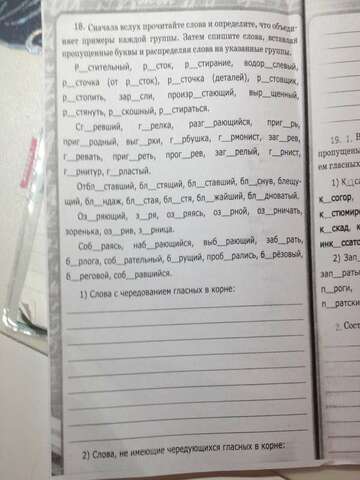 18. Сначала вслух прочитайте слова и определите, что объеди-
няет примеры каждой группы. Затем спишите слова, вставляя
пропущенные буквы и распределяя слова на указанные группы.
Р__стительный, р__сток, р__стирание, водор__слевый,
р__сточка (от р__сток), р__сточка (деталей), р__стовщик,
р__стопить, зар__сли, произр__стающий, выр__щенный,
р__стянуть, р__скошный, р__стираться.
Сг__ревший, г__релка, разг__рающийся, приг__рь,
приг__родный, выг__рки, г__рбушка, г__рмонист, заг__рев,
г__ревать, приг__реть, прог__рев, заг__релый, г__рнист,
г__рнитур, г__рластый.
Отбл__ставший, бл__стящий, бл__ставший, бл__снув, блещу-
щий, бл__ндаж, бл__стая, бл__стя, бл__жайший, бл__дноватый.
Оз__ряющий, з__ря, оз__ряясь, оз__рной, оз__рничать,
зоренька, оз__рив, з__рница.
Соб__раясь, наб__рающийся, выб__рающий, заб__рать,
б__рлога, соб__рательный, б__рущий, проб__рались, б__рёзовый,
б__реговой, соб__равшийся.
1) Слова с чередованием гласных в корне:
2) Слова, не имеющие чередующихся гласных в корне:
19. 1.
пропущены
ем гласных
1) К__сат
к__согор,
к__стюмир
к__скад, к
инк__ссато
2) Зап__
зап__рать
п__роги,
п__ратски
2. Сост